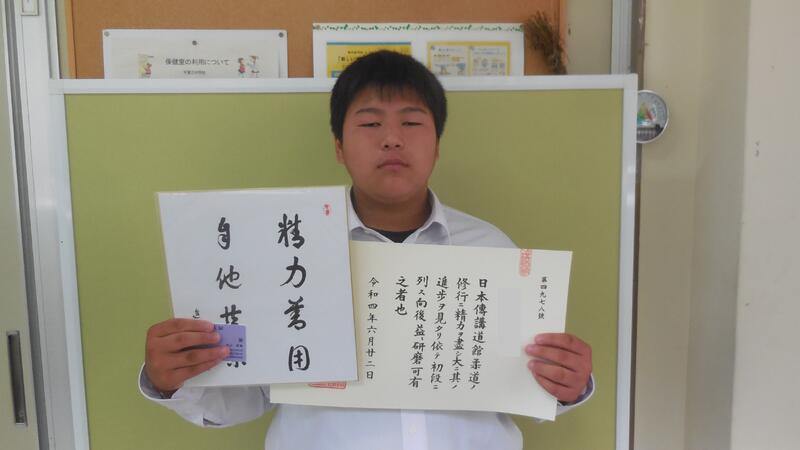 保健室の利用について
精力善用
自他共栄
第四九七八號
日本傳講道館柔道ノ
修行ニ精力ヲ盡シ大ニ其ノ
進歩ヲ見タリ依テ初段ニ
列ス向後益〻研磨可有
之者也
令和四年六月廿二日